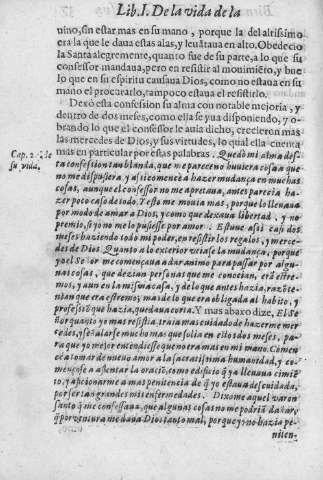 Lib. I. De la vida de la
uino, sin estar mas en su mano, porque la del altissimo
era la que le daua estas alas, y leuãtaua en alto. Obedecio
la Santa alegremente, quanto fue de su parte, a lo que su
confessor mandaua, pero en resistir al mouimiẽto, y bue
lo que en su espiritu causaua Dios, como no estaua en su
mano el procurarlo, tampoco estaua el resistirlo.
Dexò esta confession su alma con notable mejoria, y
dentro de dos meses, como ella se yua disponiendo, y o-
brando lo que el confessor le auia dicho, crecieron mas
las mercedes de Dios, y sus virtudes, lo qual ella cuenta
mas en particular por estas palabras. Quedò mi alma des
Cap. 24. de
su vida.
ta confession tan blanda, que me parece no huuiera cosa a que
no me dispusiera, y assi comencè a hazer mudança en muchas
cosas, aunque el confessor no me apretaua, antes parecia ha-
zer poco caso de todo. Y esto me mouia mas, porque lo lleuaua
por modo de amar a Dios, y como que dexaua libertad, y no
premio, si yo no me lo pusiesse por amor. Estuue assi casi dos
meses haziendo todo mi poder, en resistir los regalos, y merce-
des de Dios. Quanto a lo exterior veiase la mudança, porque
ya el Señor me començaua a dar animo para passar por algu-
nas cosas, que dezian personas que me conocian, erã estre-
mos, y aun en la misma casa, y de lo que antes hazia, razõ te-
nian que era estremo, mas de lo que era obligada al habito, y
professiõ que hazia, quedaua corta. Y mas abaxo dize, El Se
ñor quanto yo mas resistia, traia mas cuidado de hazerme mer
cedes, y señalarse mucho mas que solia en estos dos meses, pa-
ra que yo mejor entendiesse que no era mas en mi mano. Comen
cè a tomar de nueuo amor a la sacratissima humanidad, y co-
mençose a assentar la oraciõ, como edificio q̃ ya lleuaua cimiẽ
to, y aficionarme a mas penitencia de q̃ yo estaua descuidada,
por ser tan grandes mis enfermedades. Dixome aquel varon
santo q̃ me confessaua, que algunas cosas no me podriã dañar,
q̃ por ventura me daua Dios tanto mal, porque yo no hazia pe-
niten-